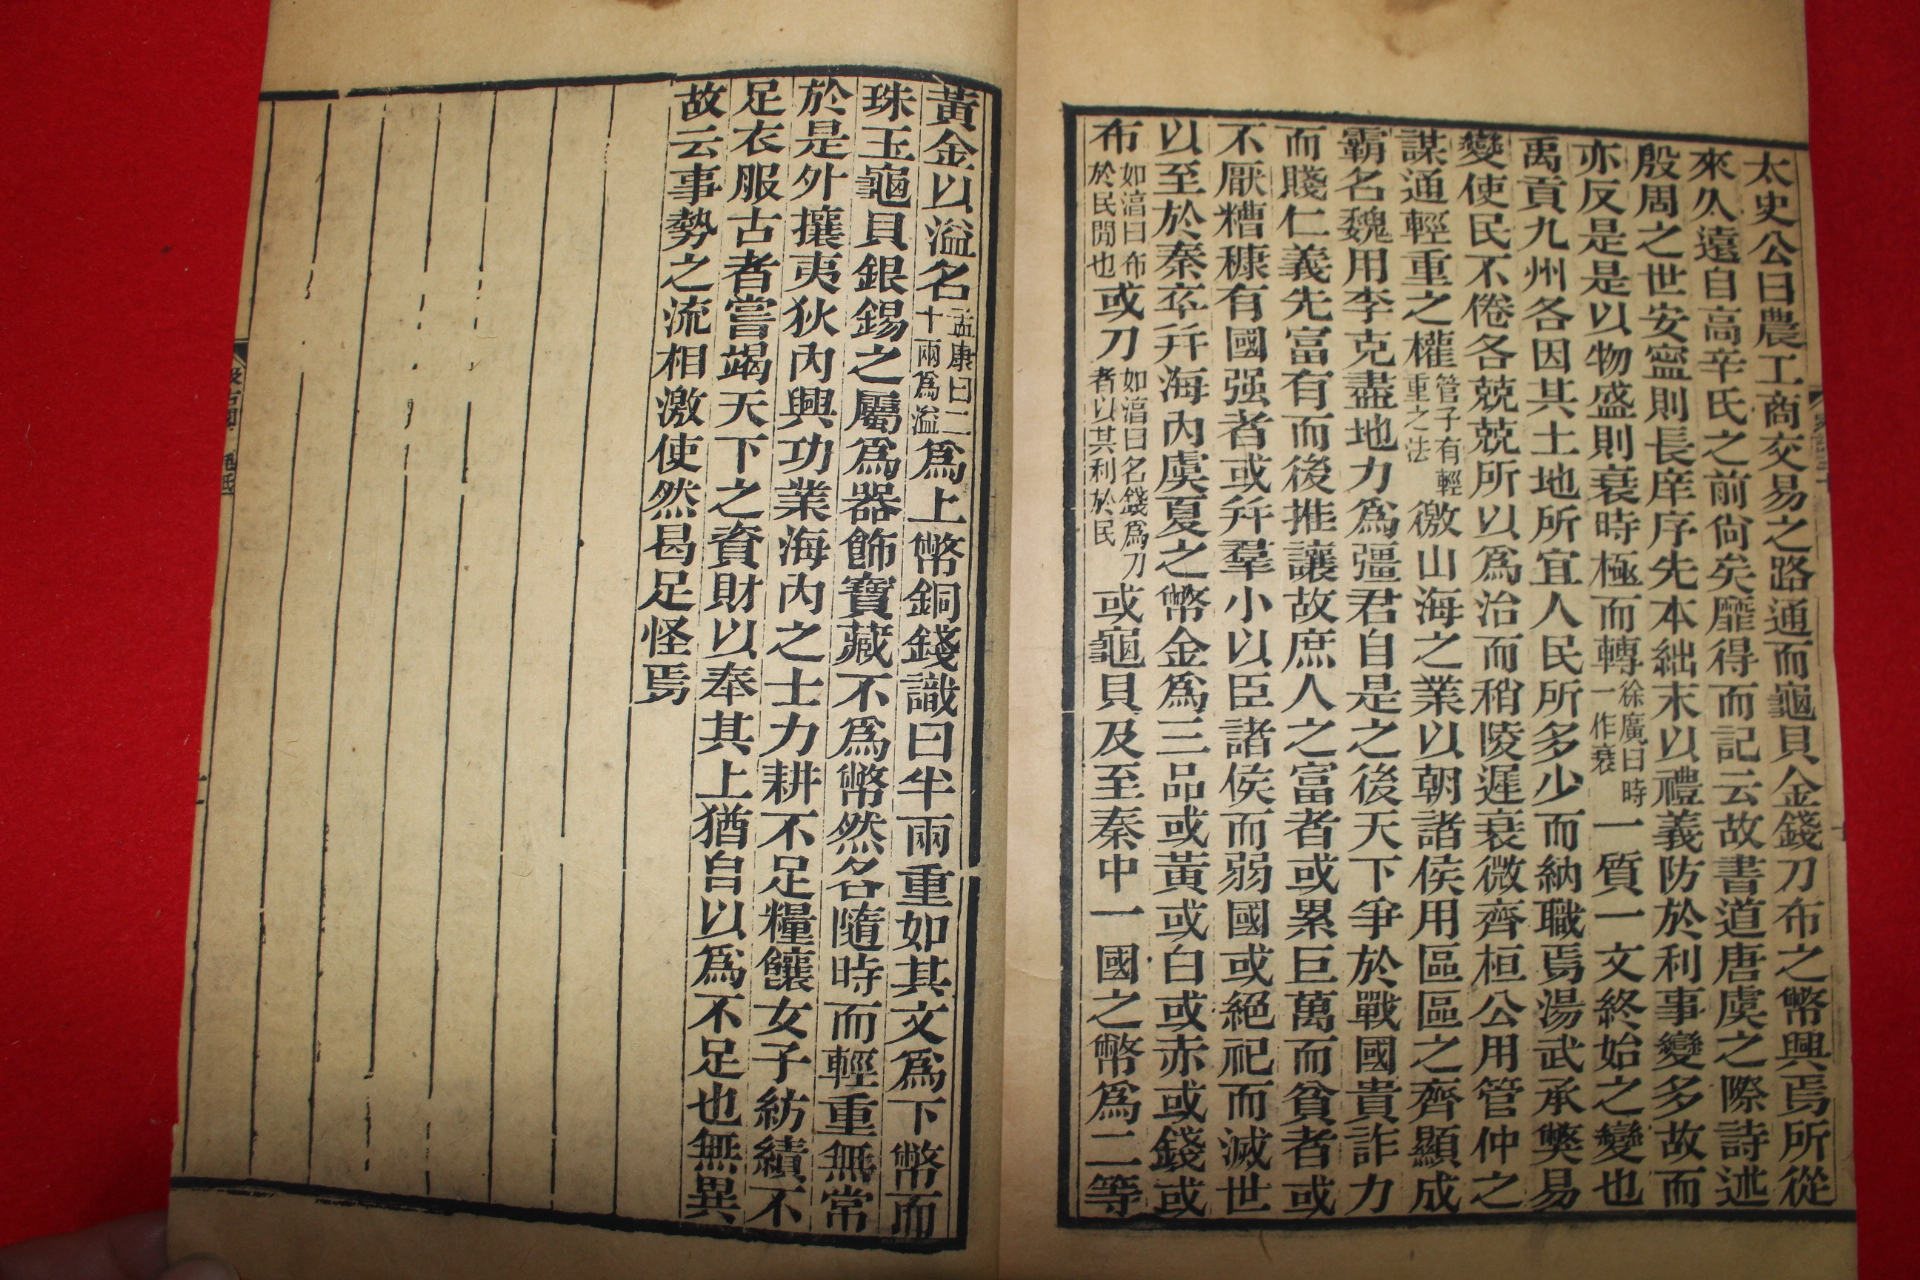 太史公曰農工商交易之路通而龜貝金錢刀布之幣興焉所從
來久遠自高辛氏之前尙矣靡得而記云故書道唐虞之際詩述
殷周之世安寍則長庠序先本絀末以禮義防於利事變多故而
亦反是是以物盛則衰時極而轉徐廣曰時一作衰一質一文終始之變也
禹貢九州各因其土地所宜人民所多少而納職焉湯武承獘易
變使民不倦各兢兢所以爲治而稍陵遲衰微齊桓公用管仲之
謀通輕重之權管子有輕重之法徼山海之業以朝諸侯用區區之齊顯成
霸名魏用李克盡地力爲彊君自是之後天下爭於戰國貴詐力
而賤仁義先富有而後推讓故庶人之富者或累巨萬而貧者或
不厭糟糠有國强者或幷羣小以臣諸侯而弱國或絕祀而滅世
以至於秦卒幷海內虞夏之幣金爲三品或黃或白或赤或錢或
布如淳曰布於民閒也或刀如淳曰名錢爲刀者以其利於民或龜貝及至秦中一國之幣爲二等
黃金以溢名孟康曰二十兩爲溢爲上幣銅錢識曰半兩重如其文爲下幣而
珠玉龜貝銀錫之屬爲器飾寶藏不爲幣然各隨時而輕重無常
於是外攘夷狄內興功業海內之士力耕不足糧饟女子紡績不
足衣服古者嘗竭天下之資財以奉其上猶自以爲不足也無異
故云事勢之流相激使然曷足怪焉